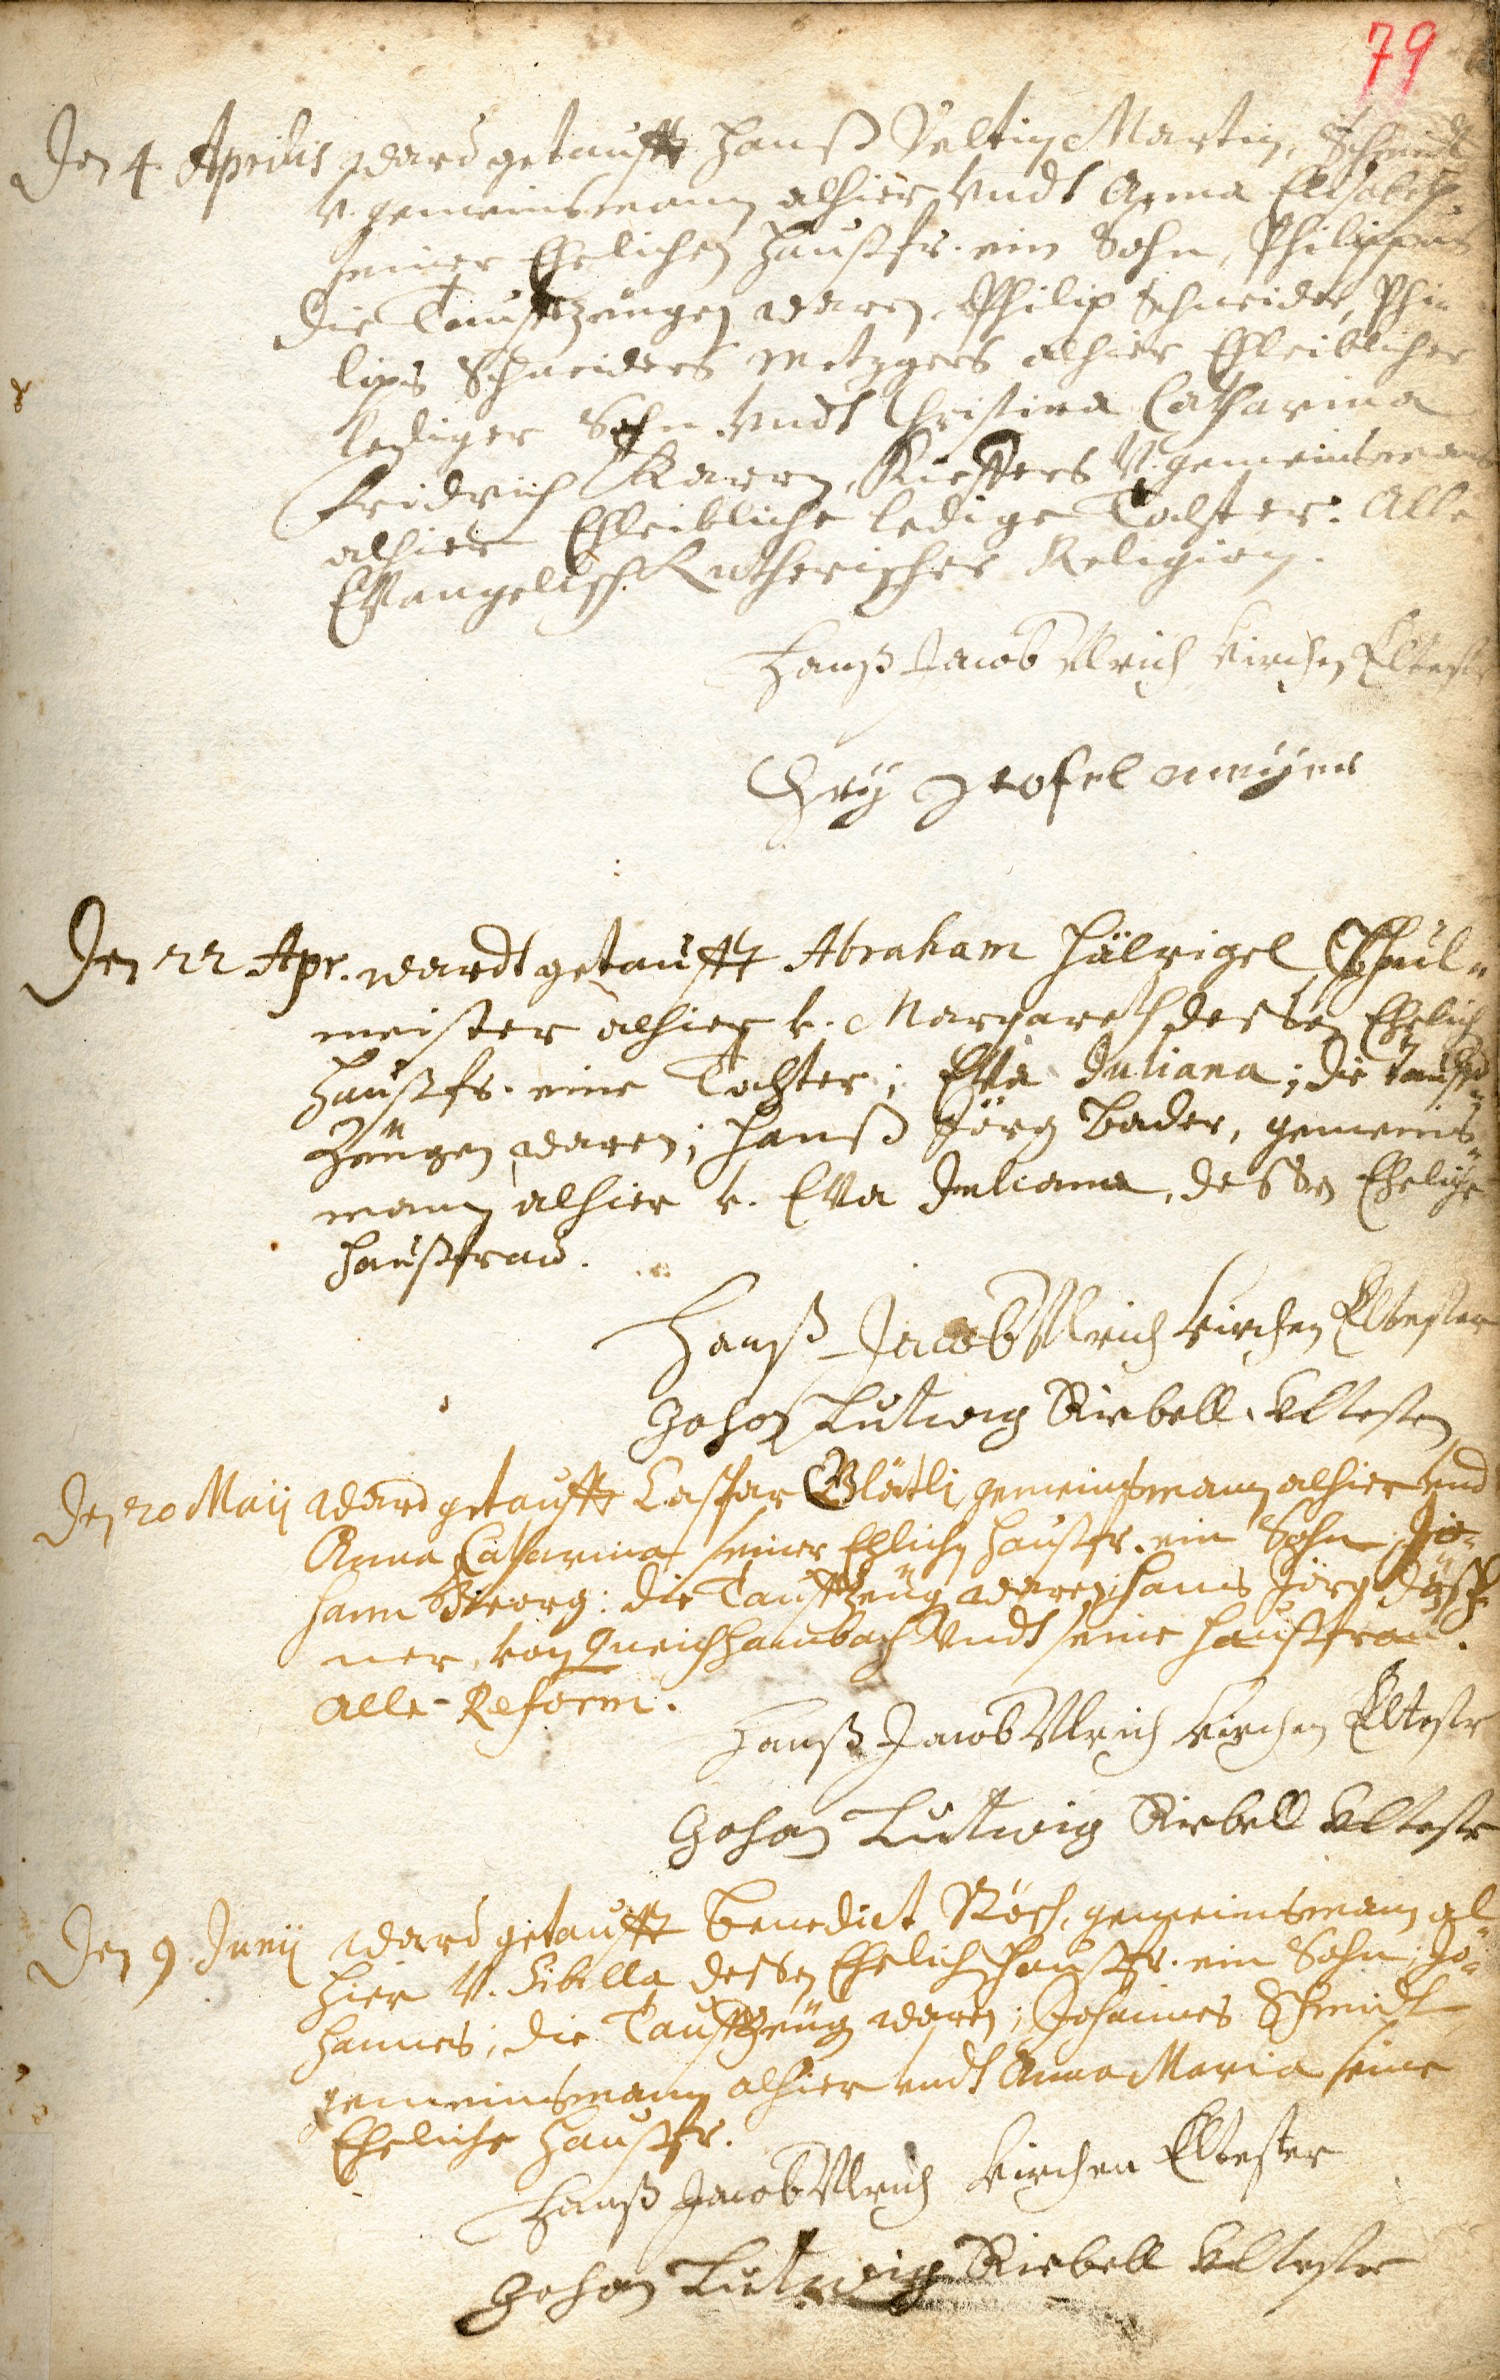 79
Den 4. Aprilis ward getaufft Hanß Veltin Martin, Schmidt
v. gemeinsmann alhier Vndt Anna Elisabeth
seiner Ehelichen Haußfr. ein Sohn, Philippus
die Tauffzeugen waren, Philip Schneider, Phi-
lips Schneiders Metzgers alhier Eheleiblicher
lediger Sohn. Vndt Christina Catharina
Fridrich Karrn, Kieffers V. gemeinsmans
alhier Eheleibliche ledige Tochter. Alle
EVangelisch Lutherischer Religion.
Hanß Jacob Vlrich Kirchen Eltester
Chry stofel meÿer
Den 22 Apr. wardt getaufft Abraham Hälrigel, Schul-
meister alhier v. Margareth dessen Ehelich
Haußfr. eine Tochter; EVa Juliana; die tauff
Zeugen waren; Hanß Jörg Bader, gemeins-
mann alhier v. EVa Juliana, dessen Eheliche
Haußfraw.
Hanß Jacob Vlrich Kirchen Eltester
Johan Ludwig Riebell Eltester
Den 20 Maij ward getaufft Caspar Blätli, gemeinsmann alhier und
Anna Catharina seiner Ehlichen Haußfr. ein Sohn, Jo-
hann Georg: die Tauffzeug waren Hans Jörg
ner, von Queichhambach Vndt seine Haußfraw.
Alle Reform.
Hanß Jacob Vlrich Kirchen Eltestr
Johan Ludwig Riebell Eltestr
Den 9. Junij ward getaufft Benedict Rösch, gemeinsmann al
hier V. Sibilla dessen Ehelich Haußfr. ein Sohn; Jo-
hannes; die Tauffzeug waren; Johannes Schmidt
gemeinsmann alhier undt Anna Maria seine
Eheliche Haußfr.
Hanß Jacob Vlrich Kirchen Eltester
Johan Ludwig Riebell Eltestr